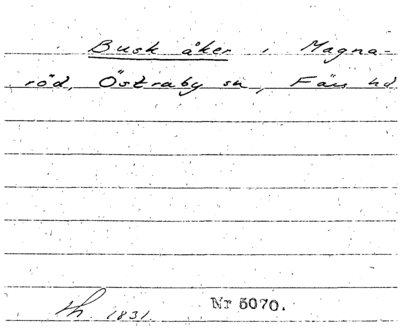 Busk åker i Magna-
röd, Östraby sn, Färs hd
Th 1831. Nr 5070.